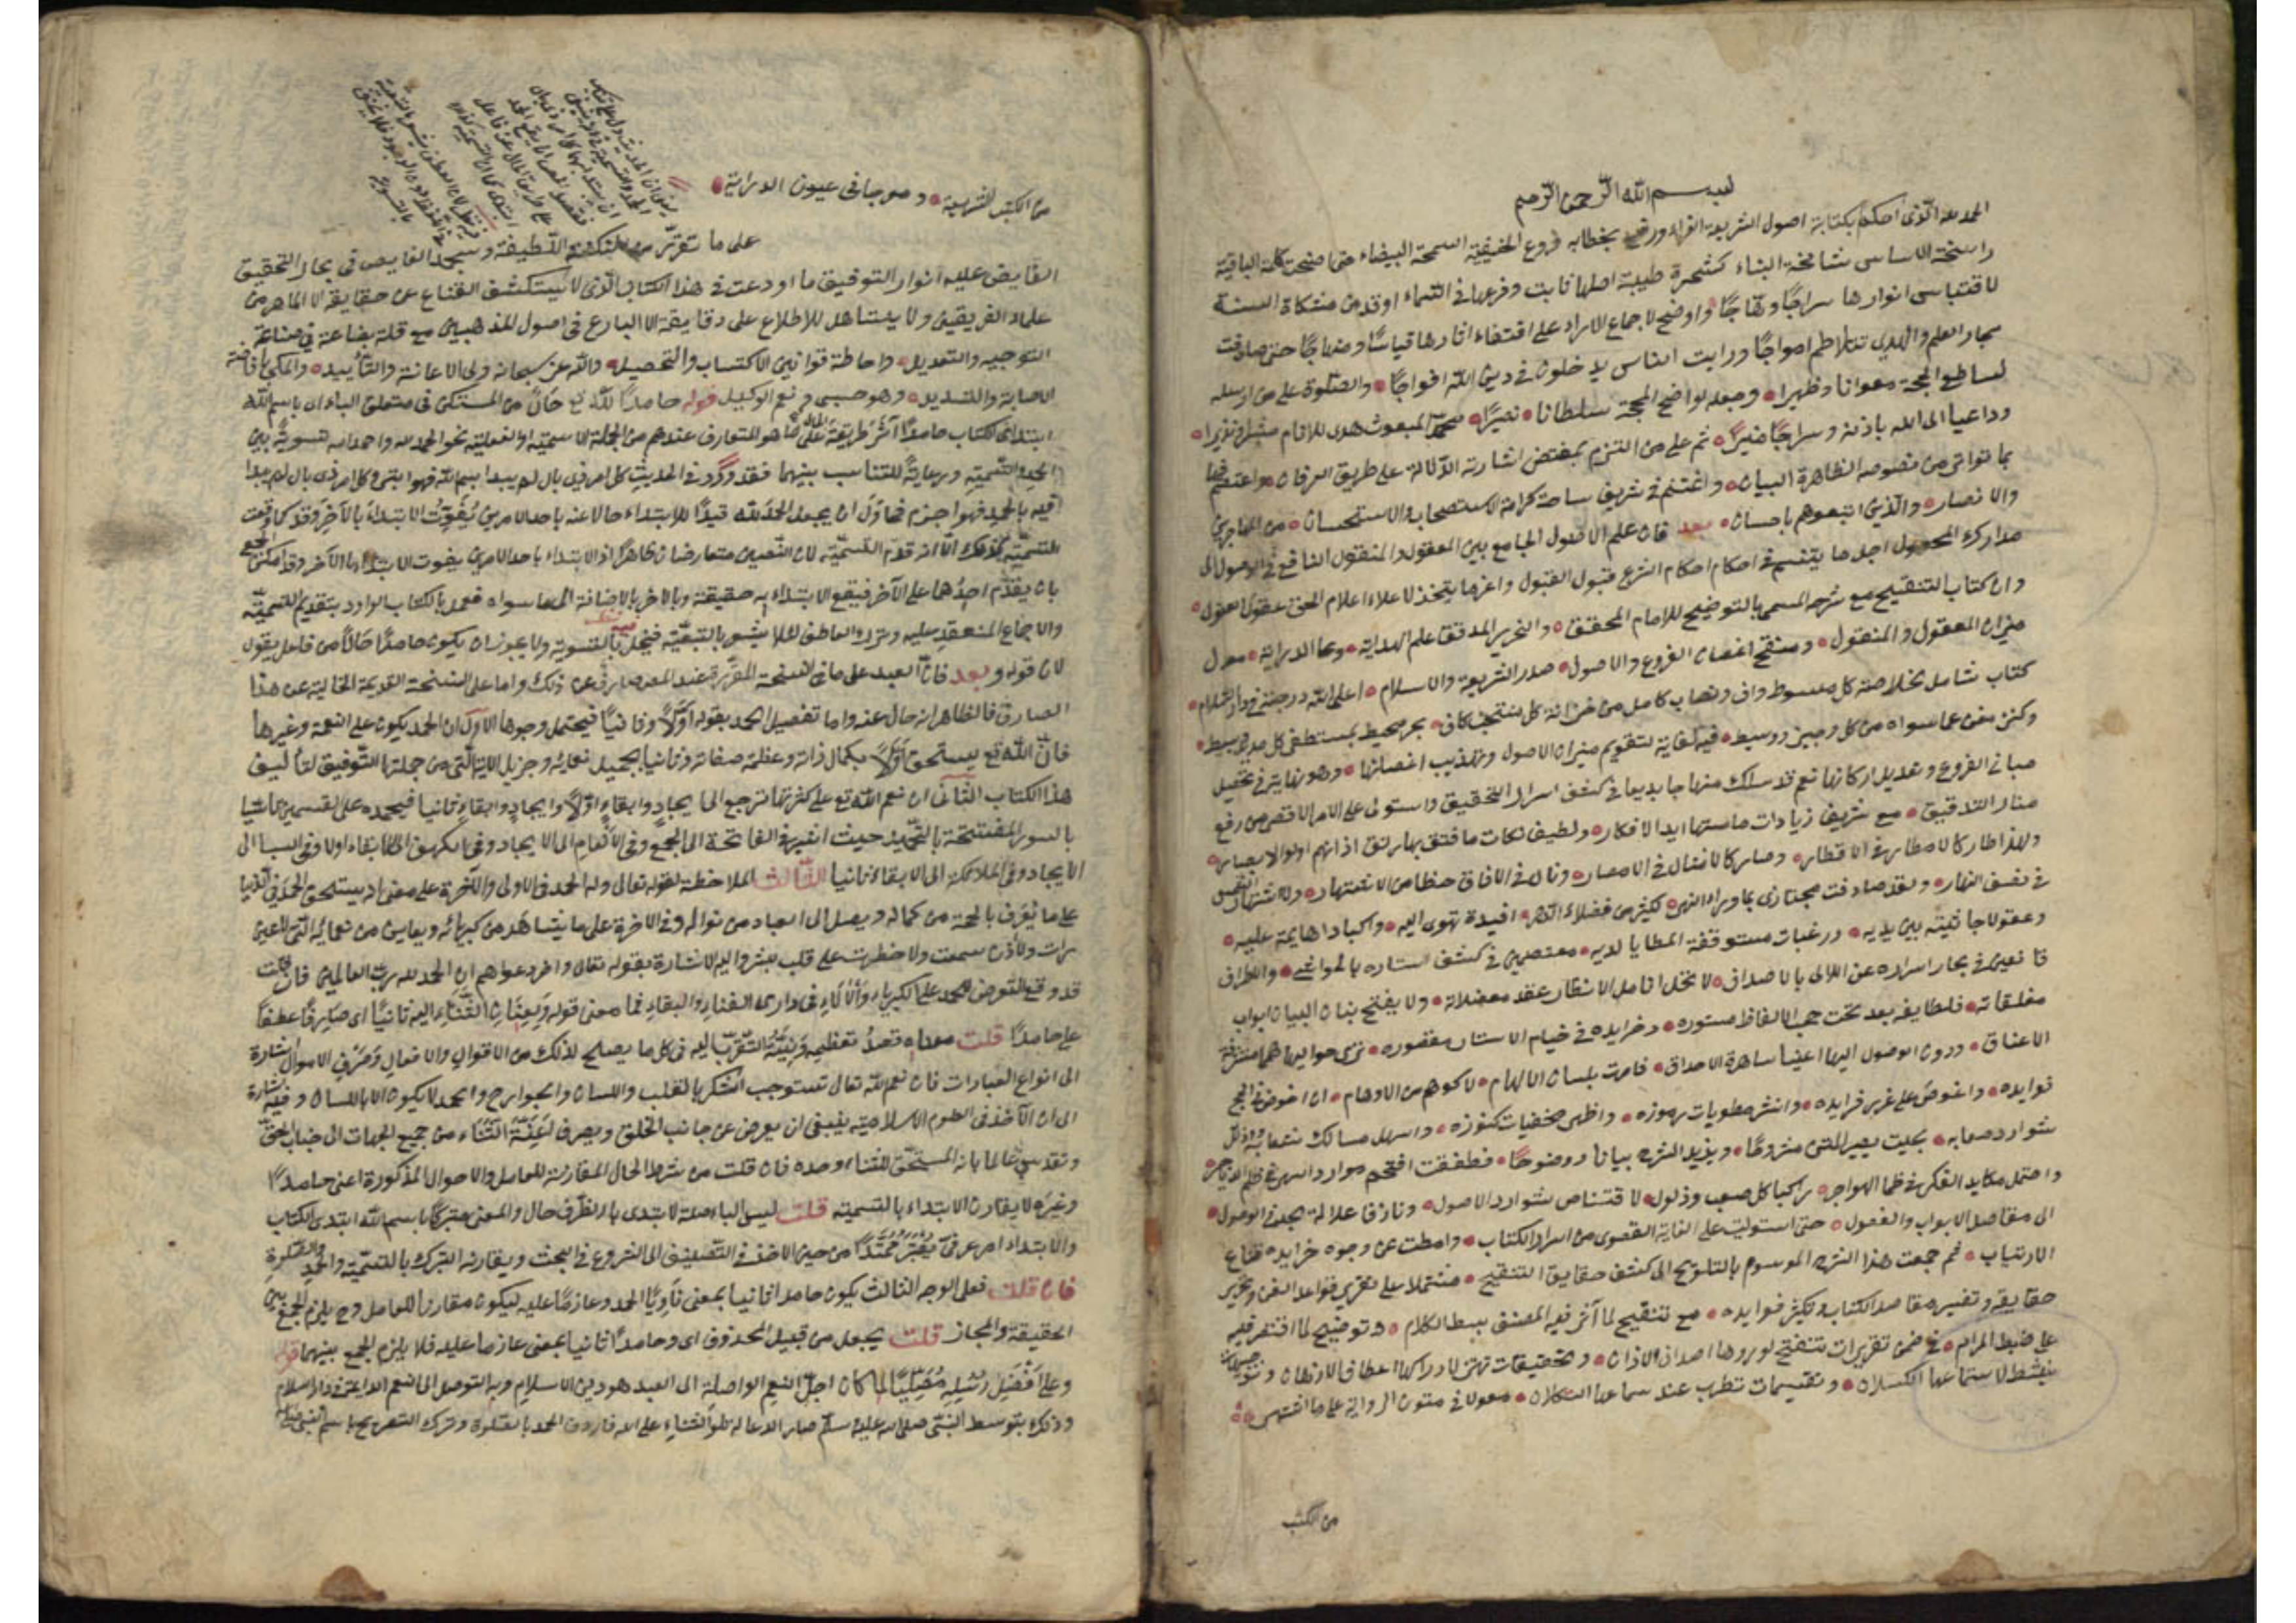 بسم الله الرحمن الرحيم
الحمد لله الذى احكم بكتابه اصول الشريعة الغراء ورفع بخطابه فروع الحنيفية السمحة البيضاء حتى اضحت كلمة الباقية
راسخة الاساس شامخة البناء كشجرة طيبة اصلها ثابت وفرعها فى السماء اوقد من مشكاة السنة
لاقتباس انوارها سراجا وهاجا واوضح لاجماع الاراء على اقتفاء اثارها قياسا ومنهاجا حتى صادفت
بحار العلم والهدى تتلاطم امواجا ورايت الناس يدخلون فى دين الله افواجا والصلوة على من ارسله
لساطع الحجة معوانا وظهيرا وجعله لواضح المحجة سلطانا نصيرا محمد المبعوث هدى للانام مبشرا ونذيرا
وداعيا الى الله باذنه وسراجا منيرا ثم على من التزم بمقتضى اشارته الدلالة على طريق العرفان واعتصم فيها
بما تواتر من نصوصه الظاهرة البيان واغتنم فى شريف ساحة كرامة الاستصحاب والاستحسان من المهاجرين
والانصار والذين اتبعوهم باحسان بعد فان علم الاصول الجامع بين المعقول والمنقول النافع فى الوصول الى
مدارك المحصول اجل ما يتنسم فى احكام احكام الشرع قبول القبول واعز ما يتخذ لاعلاء اعلام الحق عقول العقول
وان كتاب التنقيح مع شرحه المسمى بالتوضيح للامام المحقق والنحرير المدقق علم الهداية وعالم الدراية معدل
ميزان المعقول والمنقول ومنقح اغصان الفروع والاصول صدر الشريعة والاسلام اعلى الله درجته فى دار السلام
كتاب شامل لخلاصة كل مبسوط واف ونصاب كامل من خزانة كل منتخب كاف بحر محيط بمستصفى كل مديد وبسيط
وكنز مغن عما سواه من كل وجيز ووسيط فيه كفاية لتقويم ميزان الاصول وتهذيب اغصانها وهو نهاية فى تحصيل
مبانى الفروع وتعديل اركانها نعم قد سلك منهاجا بديعا فى كشف اسرار التحقيق واستولى على الامد الاقصى من رفع
منار التدقيق مع شريف زيادات ما مستها ايدى الافكار ولطيف نكات ما فتق بها رتق اذانهم اولوا الابصار
ولهذا طار كالامطار فى الاقطار وصار كالامثال فى الامصار ونال فى الافاق حظا من الاشتهار ولا اشتهار الشمس
فى نصف النهار ولقد صادفت مجتازى بما وراء النهر كثير من فضلاء الدهر افئدة تهوى اليه واكبادا هايمة عليه
وعقولا جاثية بين يديه ورغبات مستوقفة المطايا لديه معتصمين فى كشف استاره بالحواشى والاطراف
قانعين فى بحار اسراره عن اللالى بالاصداف لا تحل انامل الانظار عقد معضلاته ولا يفتح بنان البيان ابواب
مغلقاته فلطايفه بعد تحت حجب الالفاظ مستورة وخرايده فى خيام الاستار مقصورة ترى حواليها همما مستشرفة
الاعناق ودون الوصول اليها اعينا ساهرة الاحداق فامرت بلسان الالهام لا كوهم من الاوهام ان اخوض فى لجج
فوايده واغوص على غرر فرايده وانشر مطويات رموزه واظهر مخفيات كنوزه واسهل مسالك شعابه واذلل
شوارد صعابه بحيث يصير المتن مشروحا ويزيد الشرح بيانا ووضوحا فطفقت اقتحم موارد السهر فى ظلم الدياجر
واحتمل مكايد الفكر فى ظما الهواجر راكبا كل صعب وذلول لاقتناص شوارد الاصول ونازفا علالة الجد فى الوصول
الى مقاصد الابواب والفصول حتى استوليت على الغاية القصوى من اسرار الكتاب وامطت عن وجوه خرايده قناع
الارتياب ثم جمعت هذا الشرح الموسوم بالتلويح الى كشف حقايق التنقيح مشتملا على تقرير قواعد الفن وتحرير
حقايقه وتفسير مقاصد الكتاب وتكثير فوايده مع تنقيح لما آثر فيه المصنف بسط الكلام وتوضيح لما اقتصر فيه
على ضبط المرام فى ضمن تقريرات تنفتح لورودها اصداف الاذان وتحقيقات تهتز لادراكها اعطاف الاذهان وتوجيهات
ينشط لاستماعها الكسلان وتقسيمات تطرب عند سماعها الثكلان معولا فى متون الرواية على ما اشتهر
من الكتب
من الكتب الشريفة ومعرجا فى عيون الدراية
على ما تقرر من النكت اللطيفة وسيجد الغايص فى بحار التحقيق
الفايض عليه انوار التوفيق ما اودعت فى هذا الكتاب الذى لا يستكشف القناع عن حقايقه الا الماهر من
علماء الفريقين ولا يستاهل للاطلاع على دقايقه الا البارع فى اصول المذهبين مع قلة بضاعة فى صناعة
التوجيه والتعديل واحاطة قوانين الاكتساب والتحصيل والله عز سبحانه ولى الاعانة والتأييد والملى بافاضة
الاصابة والتسديد وهو حسبى ونعم الوكيل قوله حامدا لله تع حال من المستكن فى متعلق الباء اى باسم الله
ابتدائى الكتاب حامدا آثر طريقة الحال على ما هو المتعارف عندهم من الجملة الاسمية او الفعلية نحو الحمد لله واحمد الله تسوية بين
الحمد والتسمية ورعاية للتناسب بينهما فقد ورد فى الحديث كل امر ذى بال لم يبدا ببسم الله فهو ابتر وكل امر ذى بال لم يبدا
فيه بالحمد فهو اجزم فحاول ان يجعل الحمد لله قيدا للابتداء حالا عنه باحد الامرين يفوت الابتداء بالآخر وقد كما وقعت
التسمية كذلك الا انه قدم التسمية لان النصين متعارضان ظاهرا اذ الابتداء باحد الامرين يفوت الابتداء بالآخر وقد امكن الجمع
بان يقدم احدهما على الآخر فيقع الابتداء به حقيقة وبالاخر بالاضافة الى ما سواه فعمل بالكتاب الوارد بتقديم التسمية
والاجماع المنعقد عليه وترك العاطف لئلا يشعر بالتبعية فيخل بالتسوية ولا يجوز ان يكون حامدا حالا من فاعل يقول
لان قوله وبعد فان العبد على ما فى النسخة المقررة عند المصنف صارف عن ذلك واما على النسخة القديمة الخالية عن هذا
الصارف فالظاهر انه حال عنه واما تفصيل الحمد بقوله اولا وثانيا فيحتمل وجوها الاول ان الحمد يكون على النعمة وغيرها
فان الله تع يستحق اولا بكمال ذاته وعظمة صفاته وثانيا بجميل نعمائه وجزيل الايه التى من جملتها التوفيق لتأليف
هذا الكتاب الثانى ان نعم الله تع على كثرتها ترجع الى ايجاد وابقاء اولا وايجاد وابقاء ثانيا فيحمده على القسمين تاسيا
بالسور المفتتحة بالتحميد حيث اشير فى الفاتحة الى الجميع وفى الانعام الى الايجاد وفى الكهف الى الابقاء اولا وفى السبا الى
الايجاد وفى الملائكة الى الابقاء ثانيا الثالث الملاحظة لقوله تعالى وله الحمد فى الاولى والآخرة على معنى انه يستحق الحمد فى الدنيا
على ما يعرف بالحجة من كماله ويصل الى العباد من نواله وفى الاخرة على ما يشاهد من كبريائه ويعاين من نعمائه التى لا عين
رات ولا اذن سمعت ولا خطرت على قلب بشر واليه الاشارة بقوله تعالى واخر دعواهم ان الحمد لله رب العالمين فان قلت
قد وقع التعرض للحمد على الكبرياء والآلاء فى دارى الفناء والبقاء فما معنى قوله ولعنان الثناء اليه ثانيا اى صارفا عطفا
على حامدا قلت معناه قصد تعظيمه ونية التقرب اليه فى كل ما يصلح لذلك من الاقوال والافعال وصرف الاموال اشارة
الى انواع العبادات فان نعم الله تعالى تستوجب الشكر بالقلب واللسان والجوارح والحمد لا يكون الا باللسان وفيه اشارة
الى ان الآخذ فى العلوم الاسلامية ينبغى ان يعرض عن جانب الخلق ويصرف اعنة الثناء من جميع الجهات الى جناب الحق
وتقدس عالما بانه المستحق للثناء وحده فان قلت من شرط الحال المقارنة للعامل والاحوال المذكورة اعنى حامدا
وغيره لا يقارن الابتداء بالتسمية قلت ليس الباء صلة لابتدى بل الظرف حال والمعنى متبركا باسم الله ابتدى الكتاب
والابتداء امر عرفى يعتبر ممتدا من حين الاخذ فى التصنيف الى الشروع فى البحث ويقارنه التبرك بالتسمية والحمد والصلوة
فان قلت فعلى الوجه الثالث يكون حامدا ثانيا بمعنى ناويا الحمد وعازما عليه ليكون مقارنا للعامل وح يلزم الجمع بين
الحقيقة والمجاز قلت يجعل من قبيل المحذوف اى وحامدا ثانيا بمعنى عازما عليه فلا يلزم الجمع بينهما قوله
وعلى افضل رسله مصليا لما كان اجل النعم الواصلة الى العبد هو دين الاسلام وبه التوصل الى النعم الدائمة فى دار السلام
وذلك بتوسط النبى صلى الله عليه وسلم صار الدعاء له تلو الثناء على الله فاردف الحمد بالصلوة وترك التصريح باسم النبى